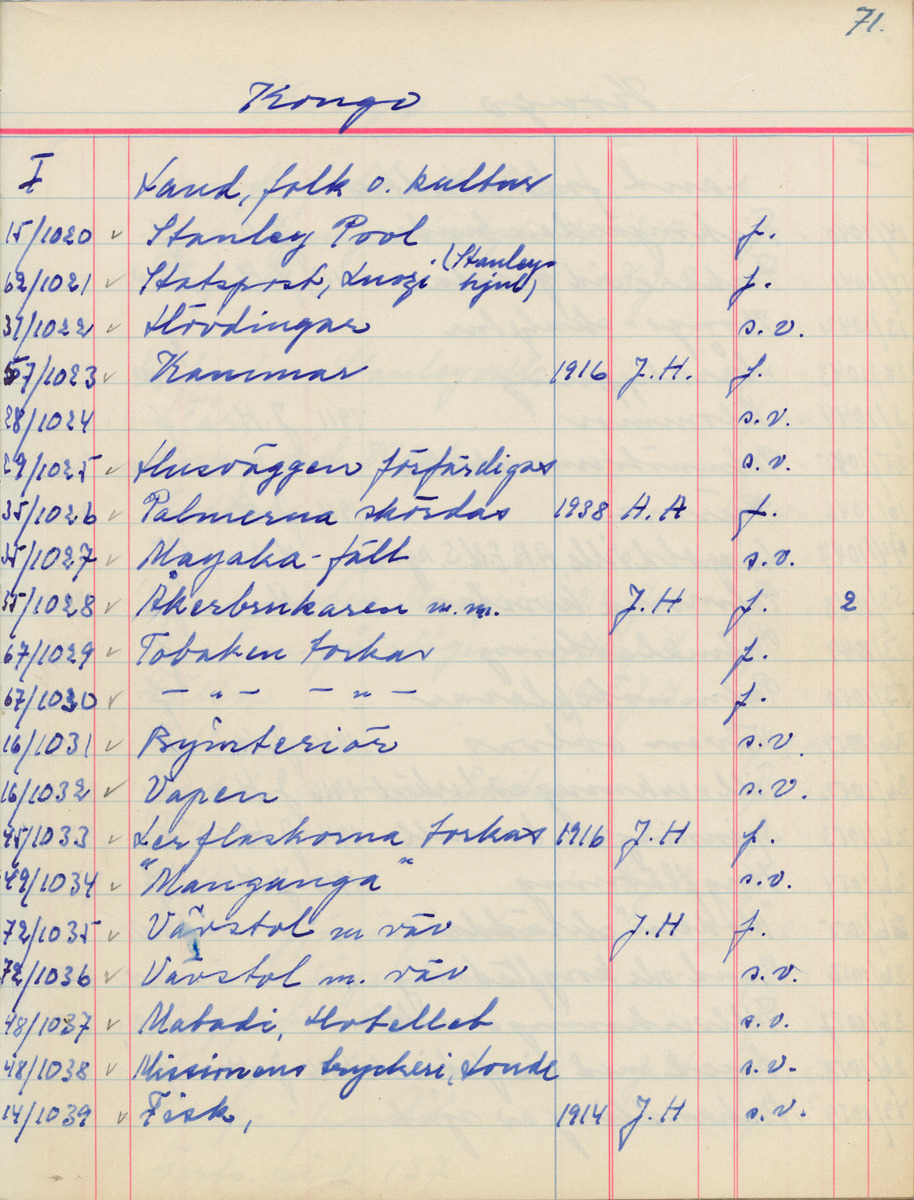 71.
Kongo
I Land, folk o. kultur
15/1020 ✓ Stanley Pool f.
62/1021 ✓ Statspost, Luozi (Stanleys hjul) f.
31/1022 ✓ Hövdingar s.v.
57/1023 ✓ Kammar 1916 J.H. f.
28/1024 s.v.
29/1025 ✓ Husväggen förfärdigas s.v.
35/1026 ✓ Palmerna skördas 1938 A.A f.
35/1027 ✓ Mayaka-fält s.v.
35/1028 ✓ Åkerbrukaren m.m. J.H f. 2
67/1029 ✓ Tobaken torkar f.
67/1030 ✓ — " — — " — f.
16/1031 ✓ Byinteriör s.v.
16/1032 ✓ Vapen s.v.
45/1033 ✓ Lerflaskorna torkas 1916 J.H f.
49/1034 ✓ "Manganga" s.v.
72/1035 ✓ Vävstol m väv J.H f.
72/1036 ✓ Vävstol m. väv s.v.
48/1037 ✓ Matadi, Hotellet s.v.
48/1038 ✓ Missionens tryckeri, Londe s.v.
14/1039 ✓ Fisk, 1914 J.H s.v.